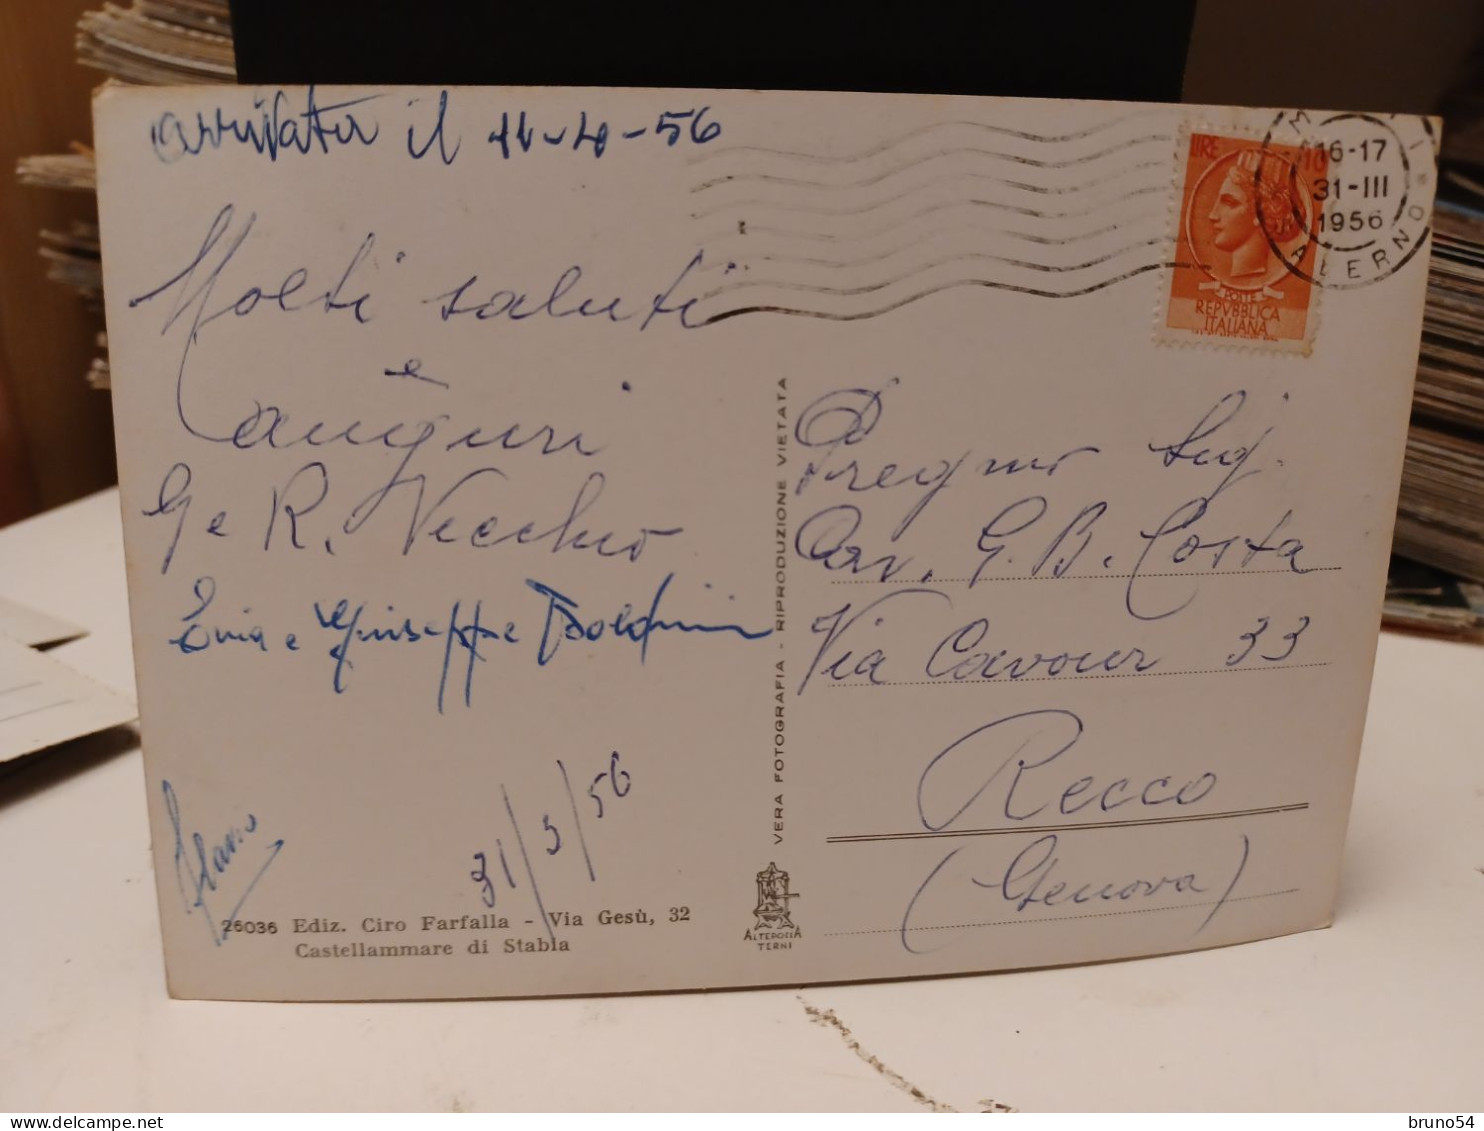 arrivata il 11-4-56
Molti saluti
e
auguri
G e R. Vecchio
e Giuseppe
31/3/56
26036 Ediz. Ciro Farfalla - Via Gesù, 32
Castellammare di Stabia
VERA FOTOGRAFIA - RIPRODUZIONE VIETATA
ALTEROCCA
TERNI
LIRE 10
POSTE
REPVBBLICA
ITALIANA
16-17
31-III
1956
SALERNO
Pregmo Sig.
Cav. G. B. Costa
Via Cavour 33
Recco
(Genova)
bruno54